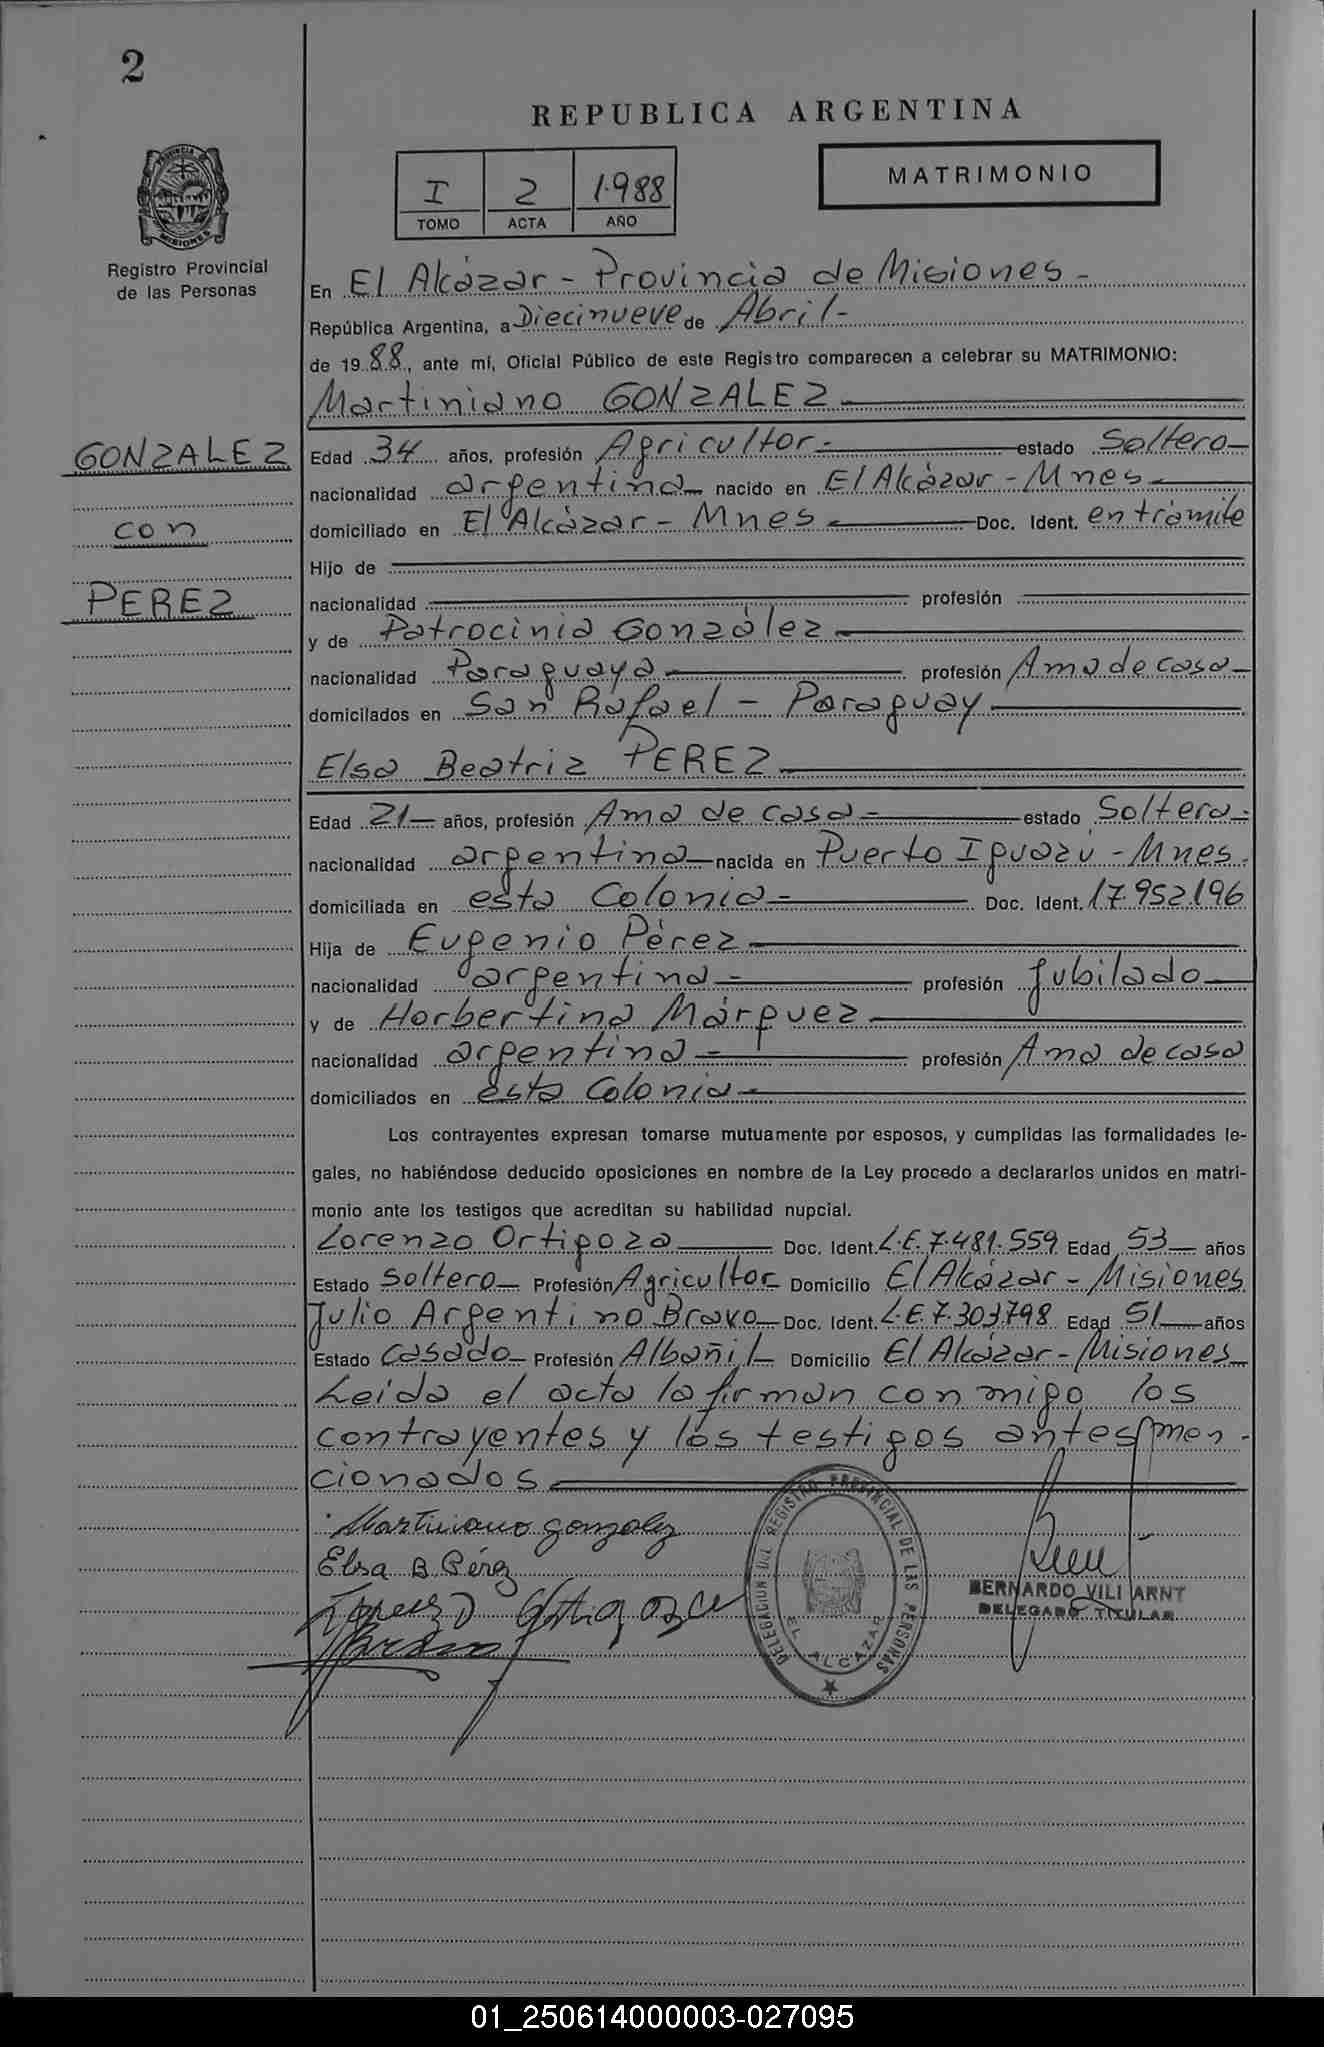 2
REPUBLICA ARGENTINA
I 2 1.988
TOMO ACTA AÑO
MATRIMONIO
PROVINCIA DE MISIONES
Registro Provincial
de las Personas
En El Alcázar - Provincia de Misiones -
República Argentina, a Diecinueve de Abril -
de 1988, ante mí, Oficial Público de este Registro comparecen a celebrar su MATRIMONIO:
Martiniano GONZALEZ
GONZALEZ
con
PEREZ
Edad 34 años, profesión Agricultor - estado Soltero
nacionalidad argentina nacido en El Alcázar - Mnes
domiciliado en El Alcázar - Mnes Doc. Ident. en trámite
Hijo de
nacionalidad profesión
y de Patrocinia González
nacionalidad Paraguaya profesión Ama de casa
domicilados en San Rafael - Paraguay
Elsa Beatriz PEREZ
Edad 21 años, profesión Ama de casa - estado Soltera -
nacionalidad argentina nacida en Puerto Iguazú - Mnes.
domiciliada en esta Colonia - Doc. Ident. 17.952.196
Hija de Eugenio Pérez
nacionalidad argentina - profesión Jubilado
y de Horbertina Márquez
nacionalidad argentina - profesión Ama de casa
domiciliados en esta Colonia -
Los contrayentes expresan tomarse mutuamente por esposos, y cumplidas las formalidades le-
gales, no habiéndose deducido oposiciones en nombre de la Ley procedo a declararlos unidos en matri-
monio ante los testigos que acreditan su habilidad nupcial.
Lorenzo Ortigoza Doc. Ident. L.E. 7.481.559 Edad 53 años
Estado Soltero Profesión Agricultor Domicilio El Alcázar - Misiones
Julio Argentino Bravo Doc. Ident. L.E. 7.303.798 Edad 51 años
Estado Casado Profesión Albañil Domicilio El Alcázar - Misiones
Leida el acta la firman conmigo los
contrayentes y los testigos antes men -
cionados
Martiniano gonzalez
Elsa B Pérez
Lorenzo Ortigoza
DELEGACION DEL REGISTRO PROVINCIAL DE LAS PERSONAS
EL ALCAZAR
BERNARDO VILLARNT
DELEGADO TITULAR
01_250614000003-027095